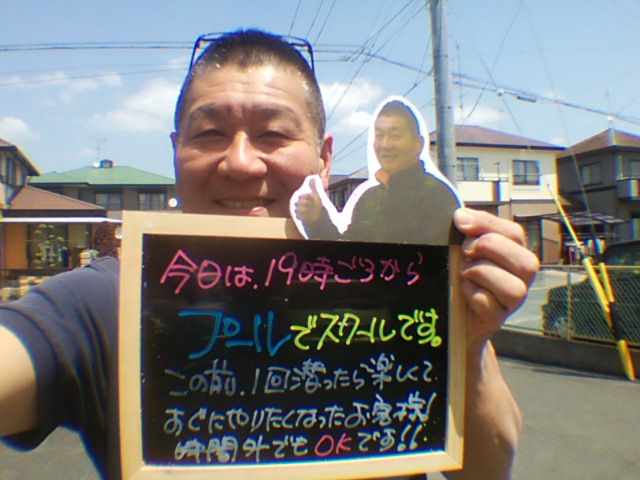 今日は、19時ごろから
プールでスクールです。
この前、1回潜ったら楽しくて、
すぐにやりたくなったお客様!
時間外でもOKです!!